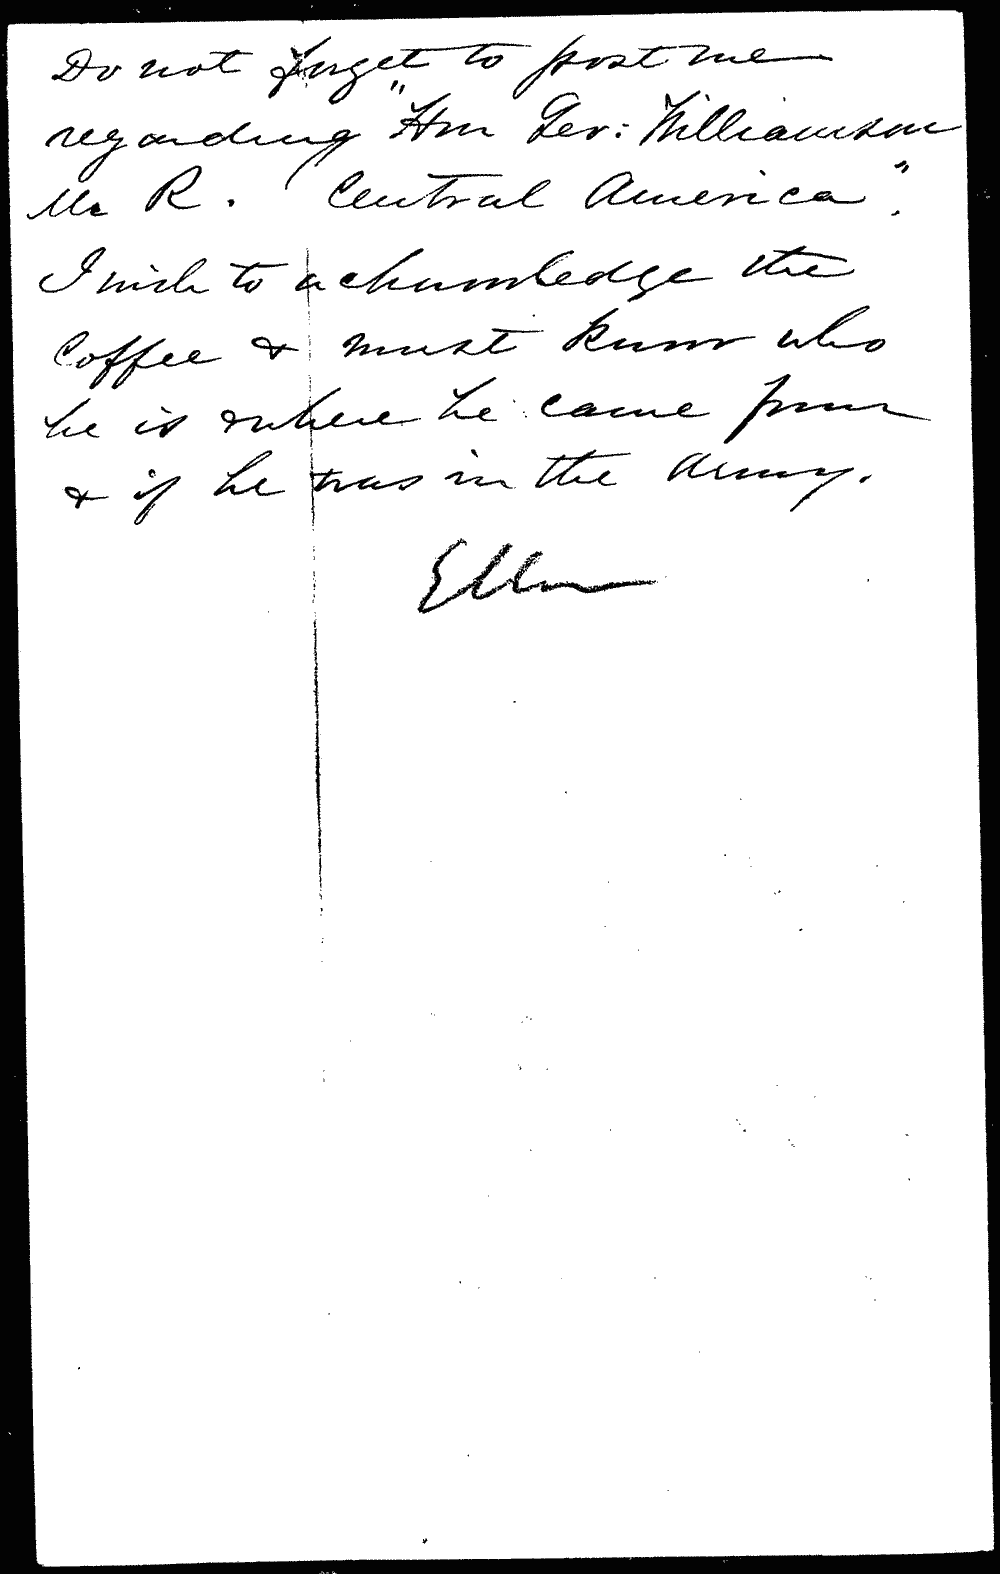 Do not forget to post me
regarding "Hon Geo: Williamson
M R. Central America".
I wish to acknowledge the
Coffee & must know who
he is & where he came from
& if he was in the Army.
Ellen